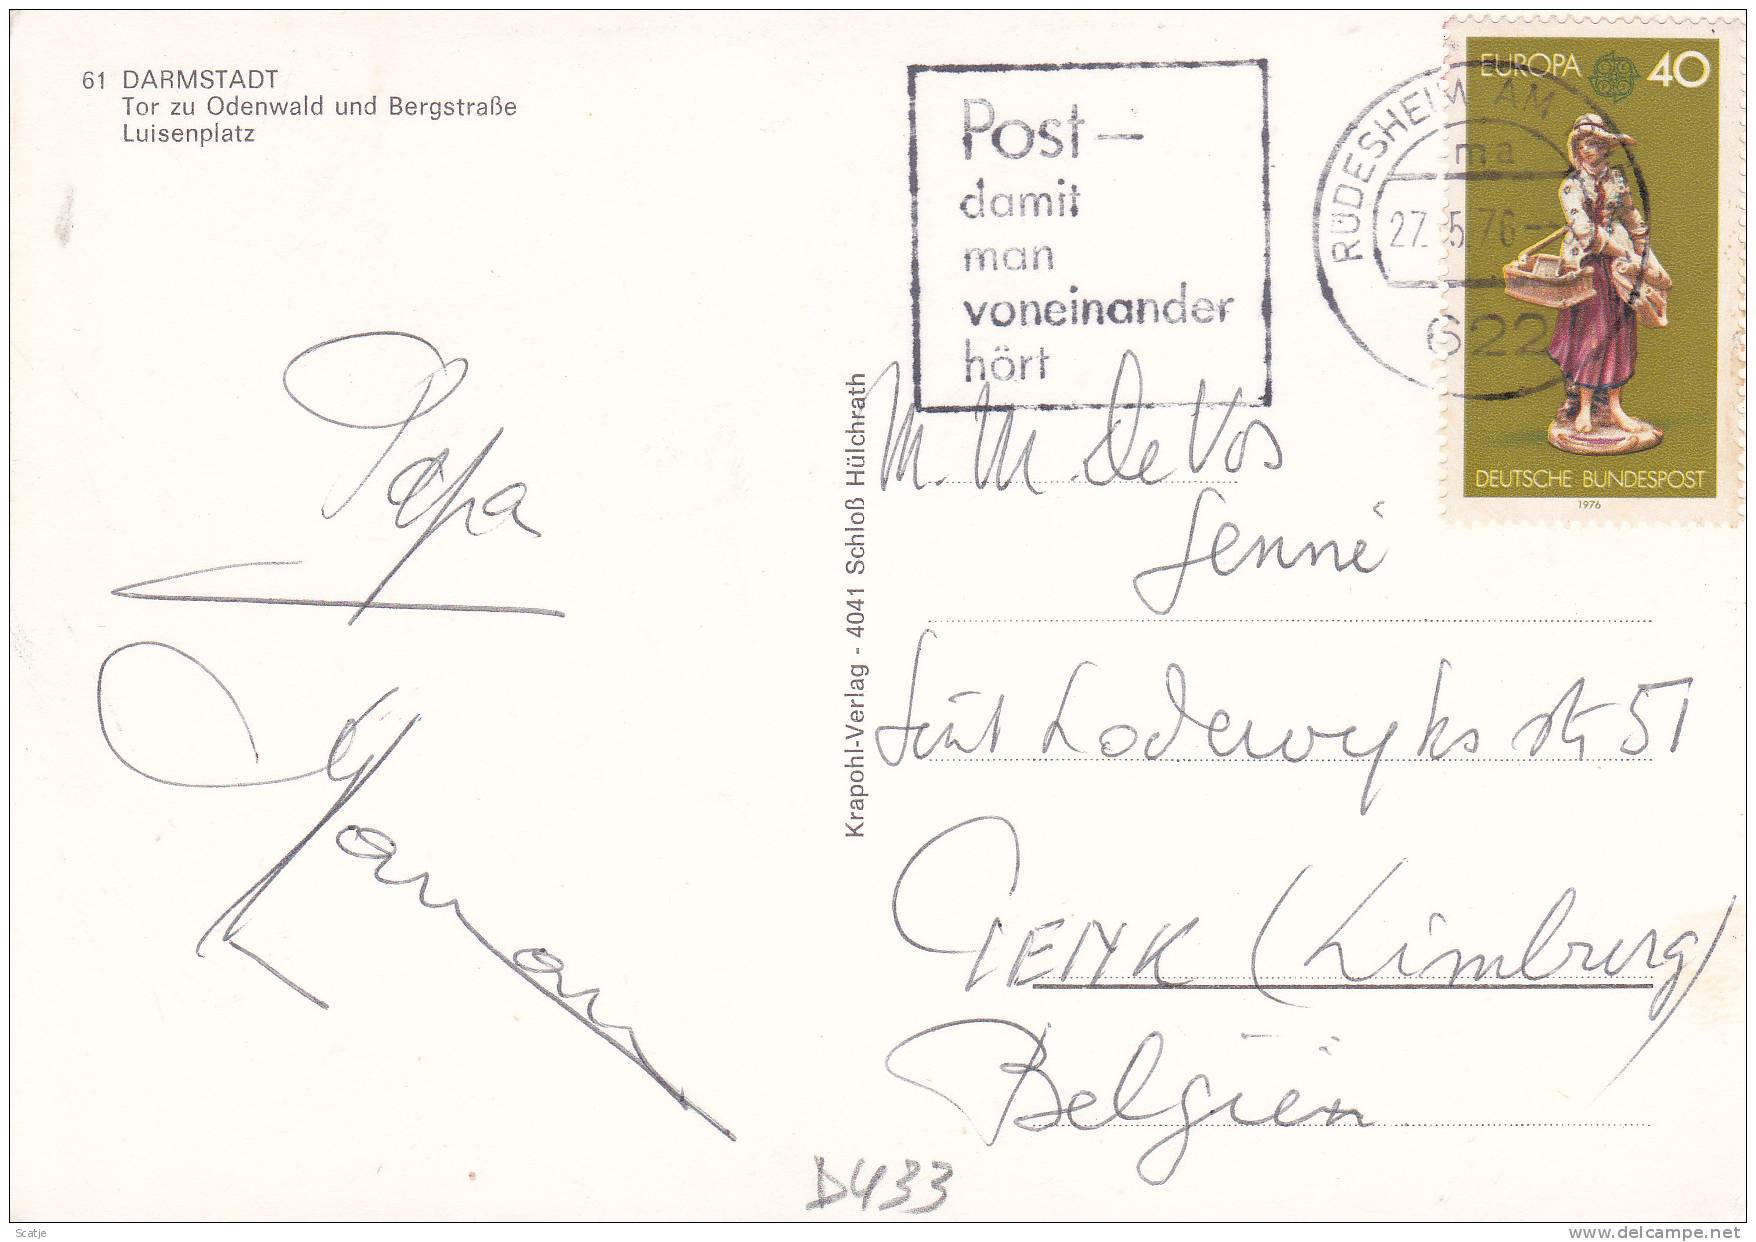 61 DARMSTADT
Tor zu Odenwald und Bergstraße
Luisenplatz
Post—
damit
man
voneinander
hört
RÜDESHEIM AM
ma
27.5.76
622
EUROPA 40
DEUTSCHE BUNDESPOST
1976
Krapohl-Verlag - 4041 Schloß Hülchrath
Papa
Maman
M. M. De Vos
Jenné
Sint Lodewyks str 51
GENK (Limburg)
Belgiën
D433
Scatje
delcampe.net